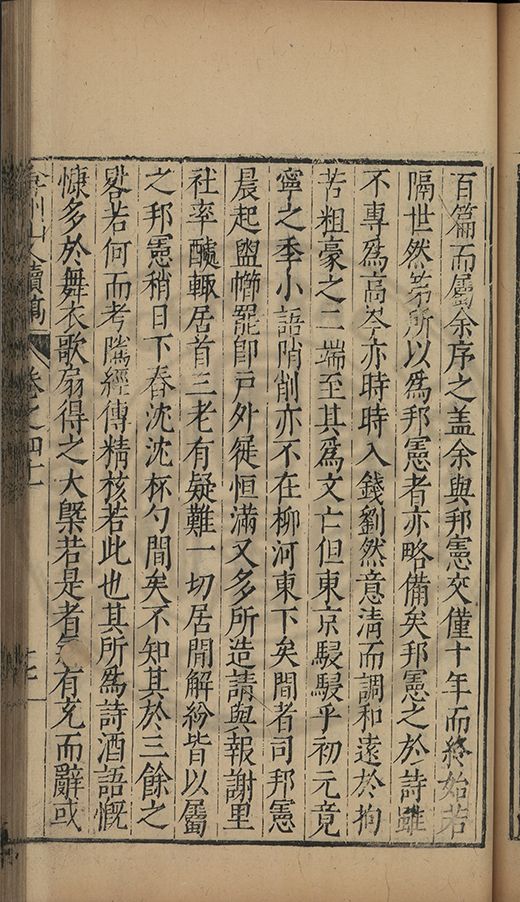 百篇而屬余序之盖余與邦憲交僅十年而終始若
隔世然第所以爲邦憲者亦略備矣邦憲之於詩雖
不專爲高岑亦時時入錢劉然意清而調和遠於拘
苦粗豪之二端至其爲文亡但東京駸駸乎初元竟
寧之季小語陗削亦不在柳河東下矣間者司邦憲
晨起盥櫛罷卽戸外屣恒滿又多所造請與報謝里
社率醵輒居首三老有疑難一切居間解紛皆以屬
之邦憲稍日下舂沈沈杯勺間矣不知其於三餘之
畧若何而考隲經傳精核若此也其所爲詩酒語慨
慷多於舞衣歌扇得之大槩若是者 有充而辭或
州山人續稿 卷之四十